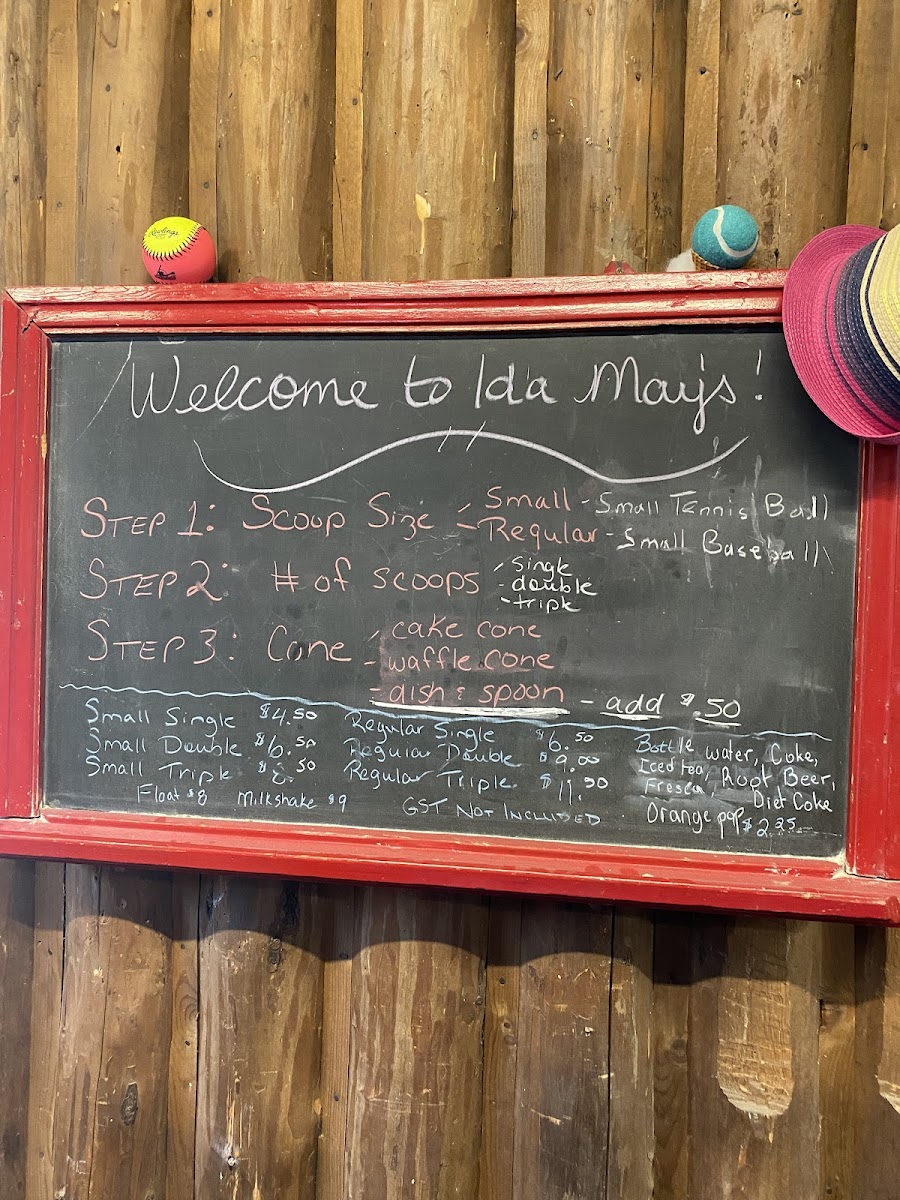 Rawlings
Welcome to Ida May's!
STEP 1: Scoop Size - Small - Small Tennis Ball
- Regular - Small Baseball
STEP 2: # of scoops - single
- double
- triple
STEP 3: Cone - cake cone
- waffle cone
- dish & spoon - add $.50
Small Single $4.50
Small Double $6.50
Small Triple $8.50
Float $8 Milkshake $9
Regular Single $6.50
Regular Double $9.00
Regular Triple $11.50
GST NOT INCLUDED
Bottle water, Coke,
Iced tea, Root Beer,
Fresca, Diet Coke
Orange pop $2.25